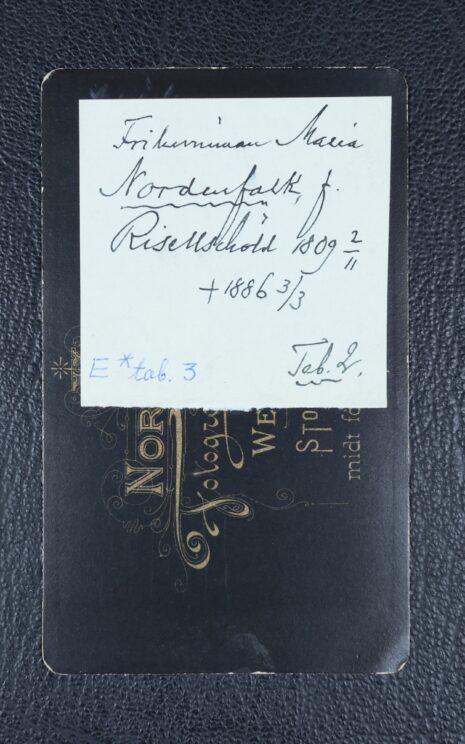 Friherrinnan Maria
Nordenfalk, f.
Risellschöld 1809 2/11
+ 1886 3/3
Tab. 2.
E * tab. 3
NOR
WE
STO
midt fö